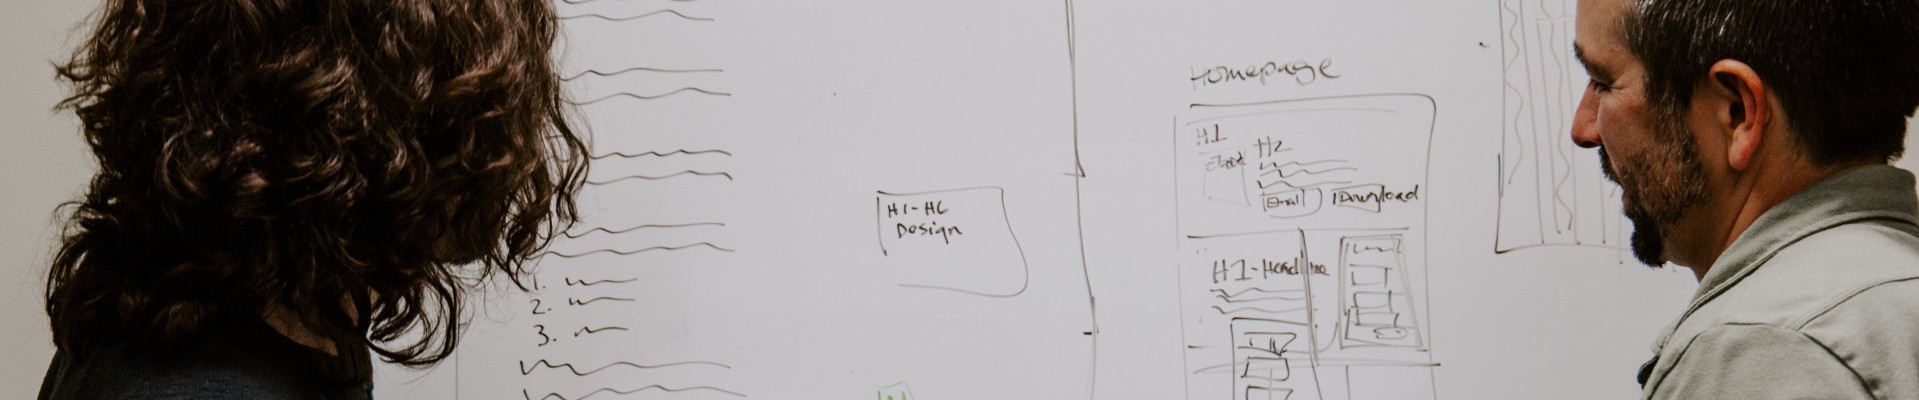 1.
2.
3.
H1-H6
Design
Homepage
H1
H2
Email
Download
H1-Headline